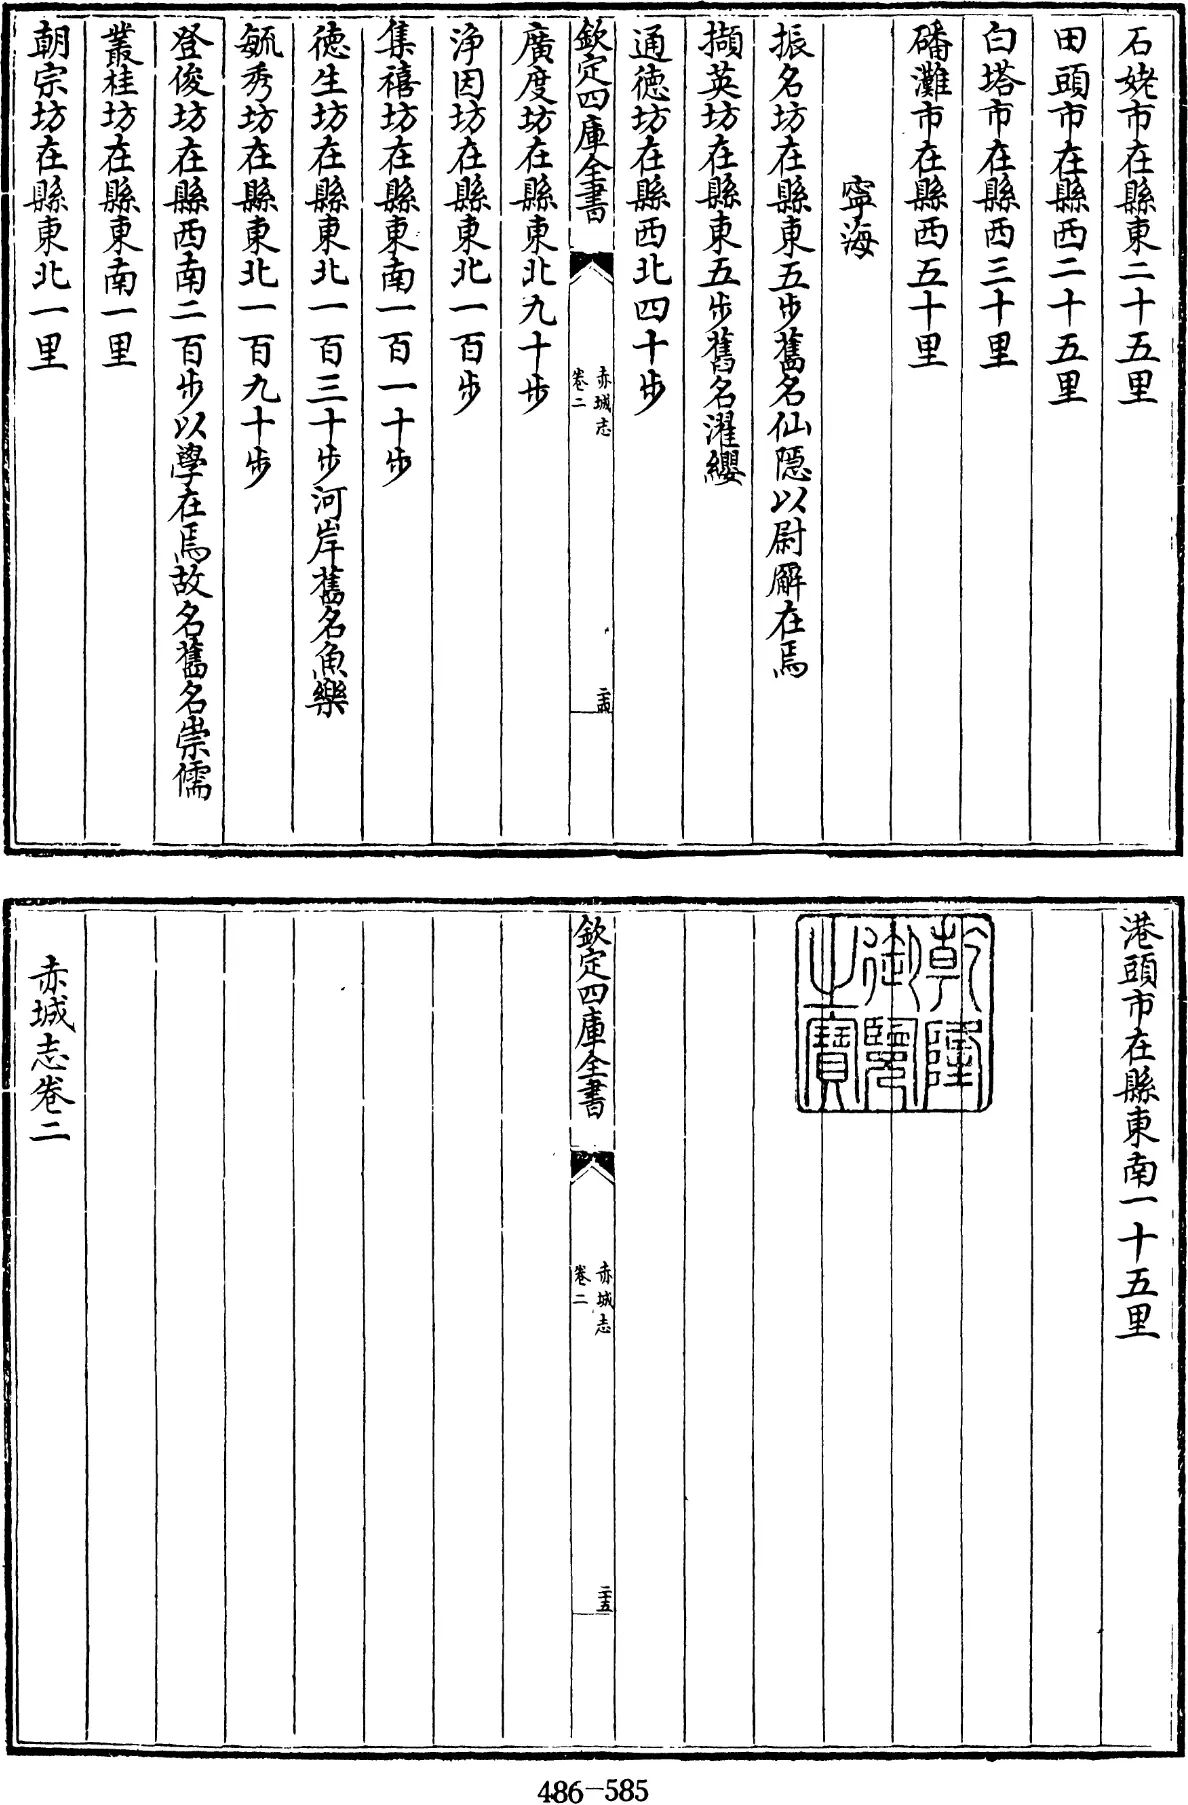 石姥市在縣東二十五里
田頭市在縣西二十五里
白塔市在縣西三十里
皤灘市在縣西五十里
寧海
振名坊在縣東五步舊名仙隱以尉廨在焉
擷英坊在縣東五步舊名濯纓
通徳坊在縣西北四十步
欽定四庫全書
赤城志
卷二
二十四
廣度坊在縣東北九十步
淨因坊在縣東北一百步
集禧坊在縣東南一百一十步
徳生坊在縣東北一百三十步河岸舊名魚樂
毓秀坊在縣東北一百九十步
登俊坊在縣西南二百步以學在焉故名舊名崇儒
叢桂坊在縣東南一里
朝宗坊在縣東北一里
港頭市在縣東南一十五里
乾隆
御覽
之寶
欽定四庫全書
赤城志
卷二
二十五
赤城志卷二
486-585